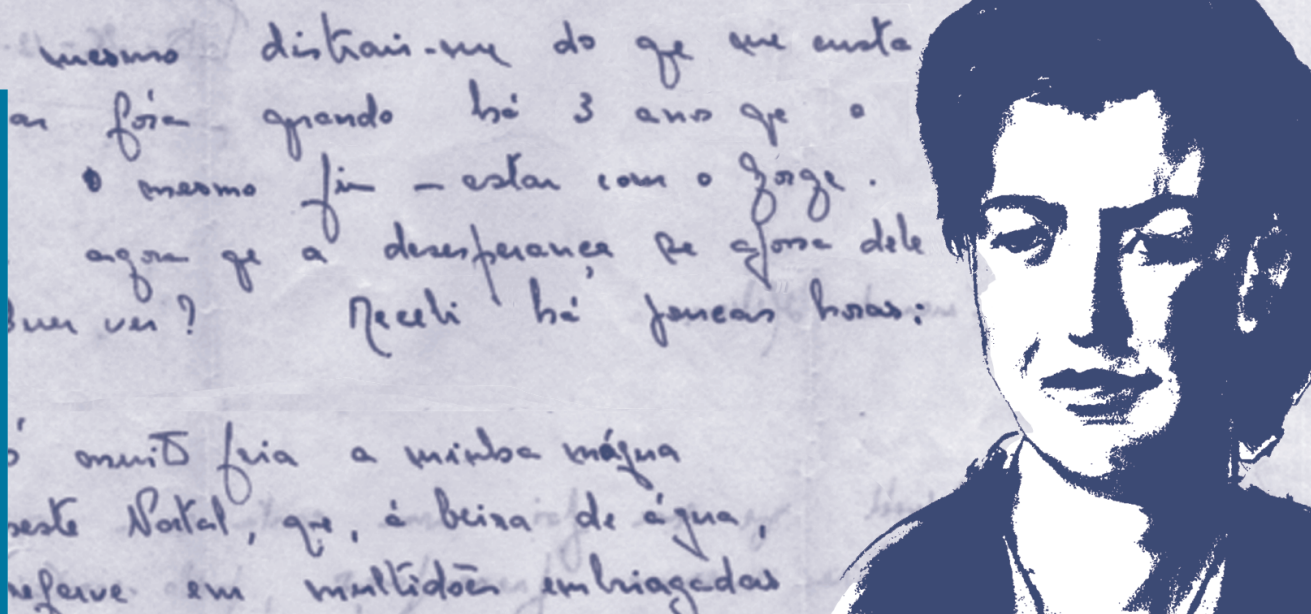 mesmo distrai-me do que me custa
ar fóra quando há 3 anos que o
o mesmo fim – estar com o Jorge.
agora que a desesperança se apossa dele
Quer ver? Recebi há poucas horas:
É muito fria a minha mágua
neste Natal, que, á beira de água,
referve em multidões embriagadas